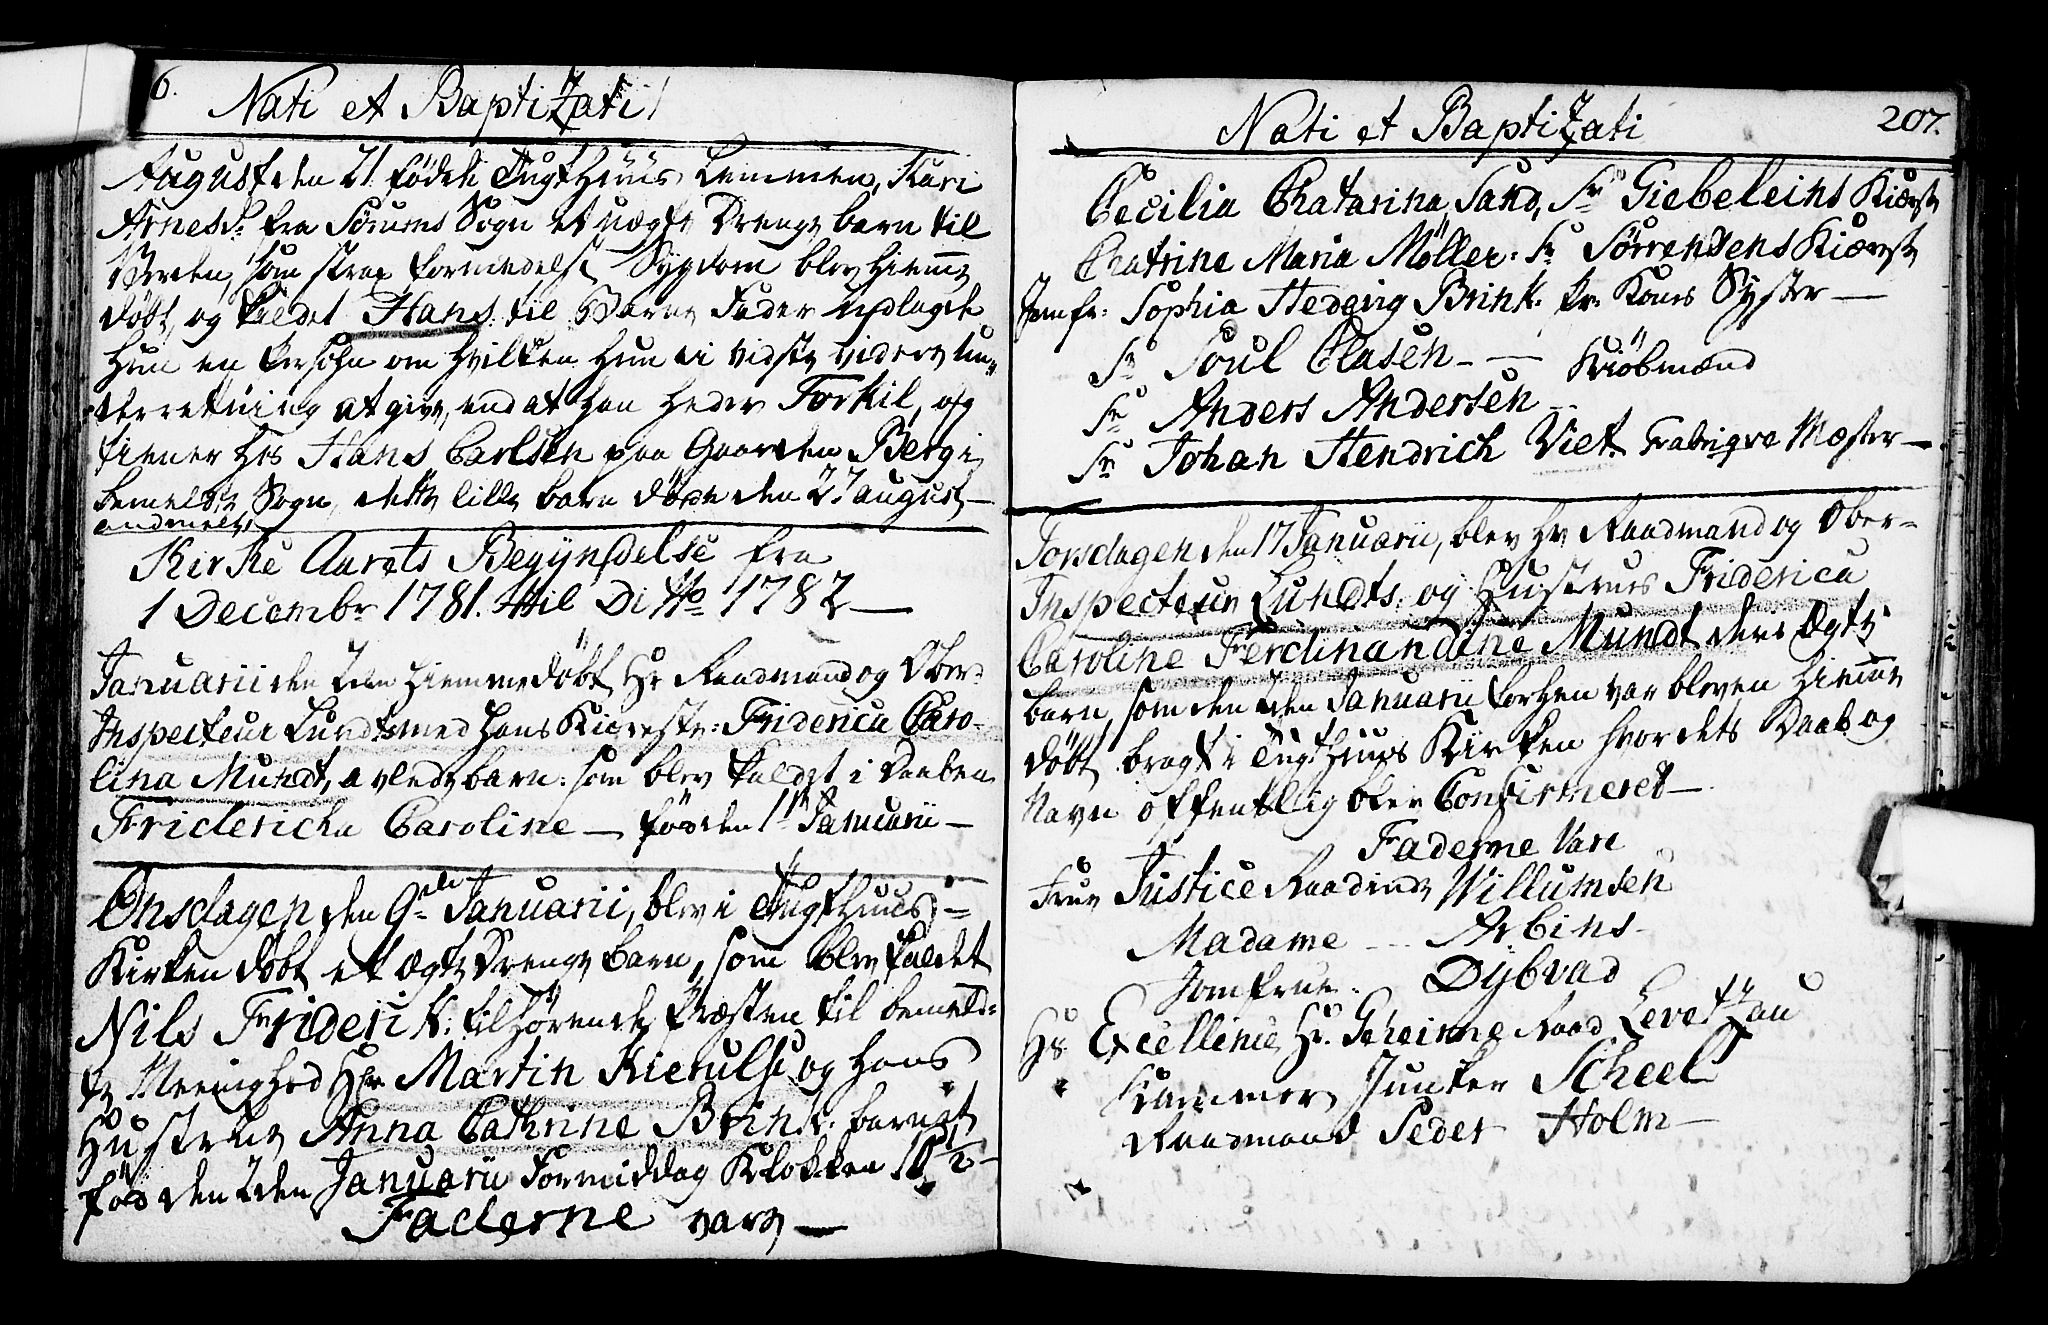 6.
Nati et Baptizati
August den 21 födte Tugthuus Lemmen, Kari
Arnesd: fra Sörums Sogn et uægte Drenge barn til
Verden, som strax formedelst Sygdom blev hiemme
döbt, og kaldet Hans. til Barne Fader udlagde
hun en Persohn om hvilken hun ei vidste videre un-
derretning at give, end at han heder Torkil, og
tiener hos Hans Carlsen paa Gaarden Berg i
bemelte Sogn, dette lille barn döde den 27 august
andmelt
Kirke Aarets Begyndelse fra
1 Decembr 1781. til Ditto 1782
Januarii den 2den hiemmedöbt Hr Raadmand og Ober-
Inspecteur Lundts med hans Kiereste: Friderica Caro-
lina Mundt, avlede barn: som blev kaldet i Daaben
Friderica Caroline — föd den 1te Januarii —
Onsdagen den 9de Januarii, blev i Tugthuus-
Kirken döbt et ægte Drenge barn, som blev kaldet
Nils Friderik: tilhörende Præsten til bemeld-
te Meenighed Hr Martin Kierulf og hans
Hustrue Anna Cathrine Brink. barnet
föd den 2den Januarii Formiddag Klokken 10 1/2 —
Faderne vare —
207.
Nati et Baptizati
Cecilia Chatarina Sand, Sr Giebeleins Kiæreste
Chatrine Maria Möller. Sr Sörrensens Kiæreste
Jomfr: Sophia Hedevig Brink. Pr: Kones Syster —
Sr Poul Clasen — — Kiöbmænd
Sr Anders Andersen
Sr Johan Hendrich Viet Fabriqve Mæster —
Torsdagen den 17 Januarii, blev Hr Raadmand og Ober-
Inspecteur Lundts. og Hustrues Friderica
Caroline Ferdinandine Mundt deres Ægte
barn, som den 2den Januarii forhen var bleven hieme
döbt bragt i Tugthuus Kirken hvor dets Daab og
Navn offentlig blev Confirmeret —
Faderne Vare
Frue Justice Raadinde Willumsen
Madame - - - Arbins
Jomfrue. Dÿbvad
Hs Excellence Hr. Geheime Raad Levetzau
" Kammer Junker Scheel
Raadmand Peder Holm —